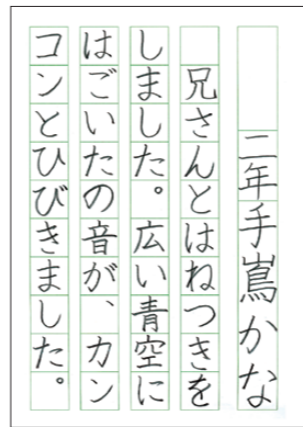 二年手嶌かな
兄さんとはねつきを
しました。広い青空に
はごいたの音が、カン
コンとひびきました。